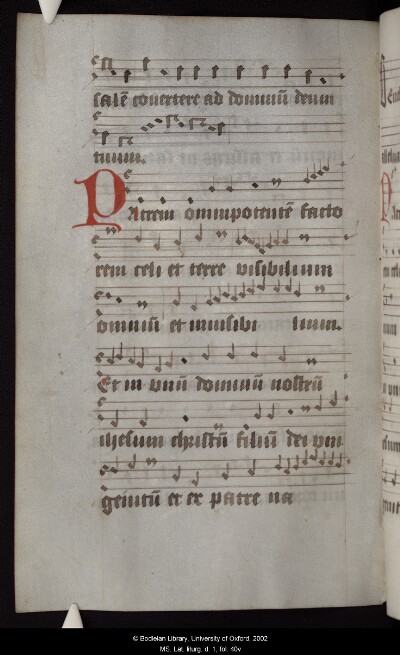 salē cōuertere ad dominū deum
tuum.
Patrem omnipotentē facto
rem celi et terre visibilium
omniū et inuisibi lium.
Et in vnū dominū nostrū
ihesum christū filiū dei vni
genitū et ex patre na
© Bodleian Library, University of Oxford, 2002
MS. Lat. liturg. d. 1, fol. 40v